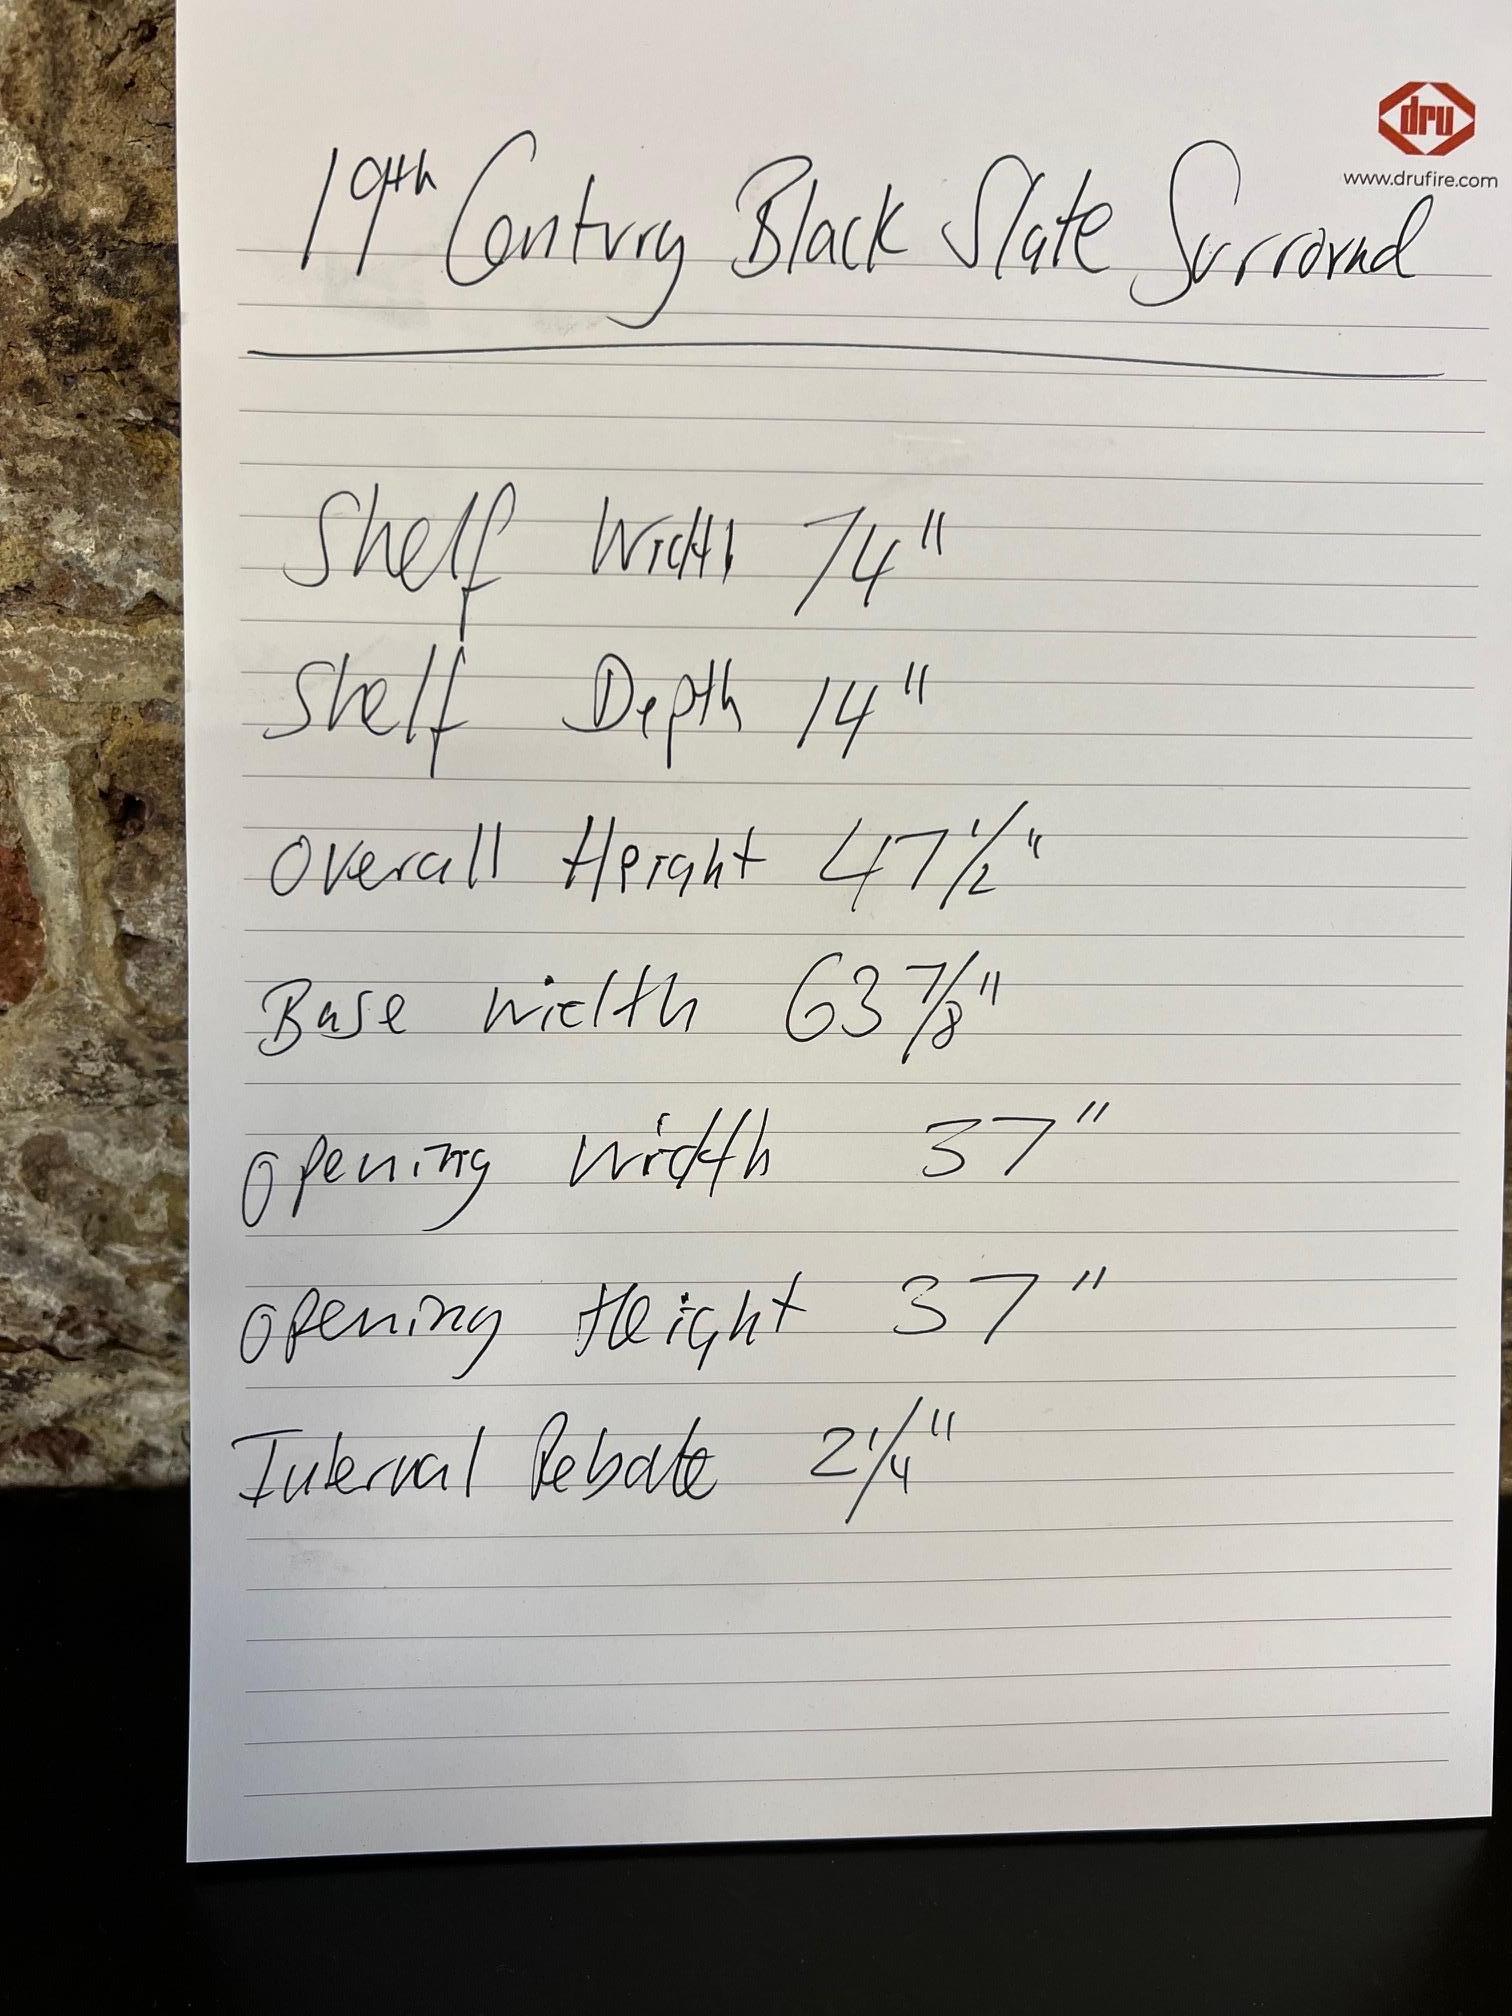 dru
www.drufire.com
19th Century Black Slate Surround
Shelf Width 74"
Shelf Depth 14"
Overall Height 47 1/2"
Base width 63 7/8"
Opening width 37"
Opening Height 37"
Internal Rebate 2 1/4"